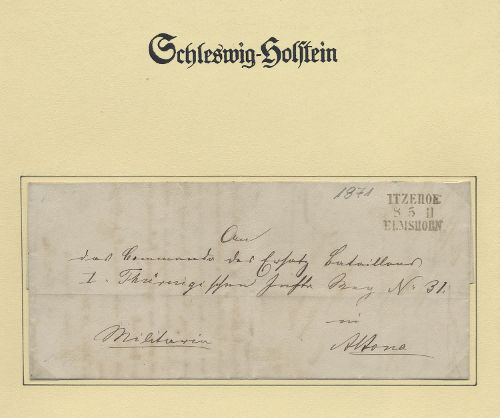 Schleswig-Holstein
1871
ITZEHOE
8 5 11
ELMSHORN
An
das Commando des Ersatz Bataillons
1. Thüringischen Inftr Reg No 31.
in
Militaria
Altona